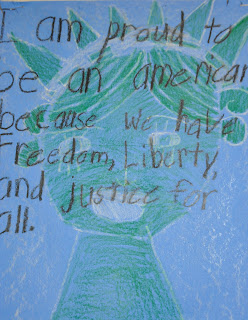 I am proud to
be an american
because we have
Freedom, Liberty,
and justice for
all.